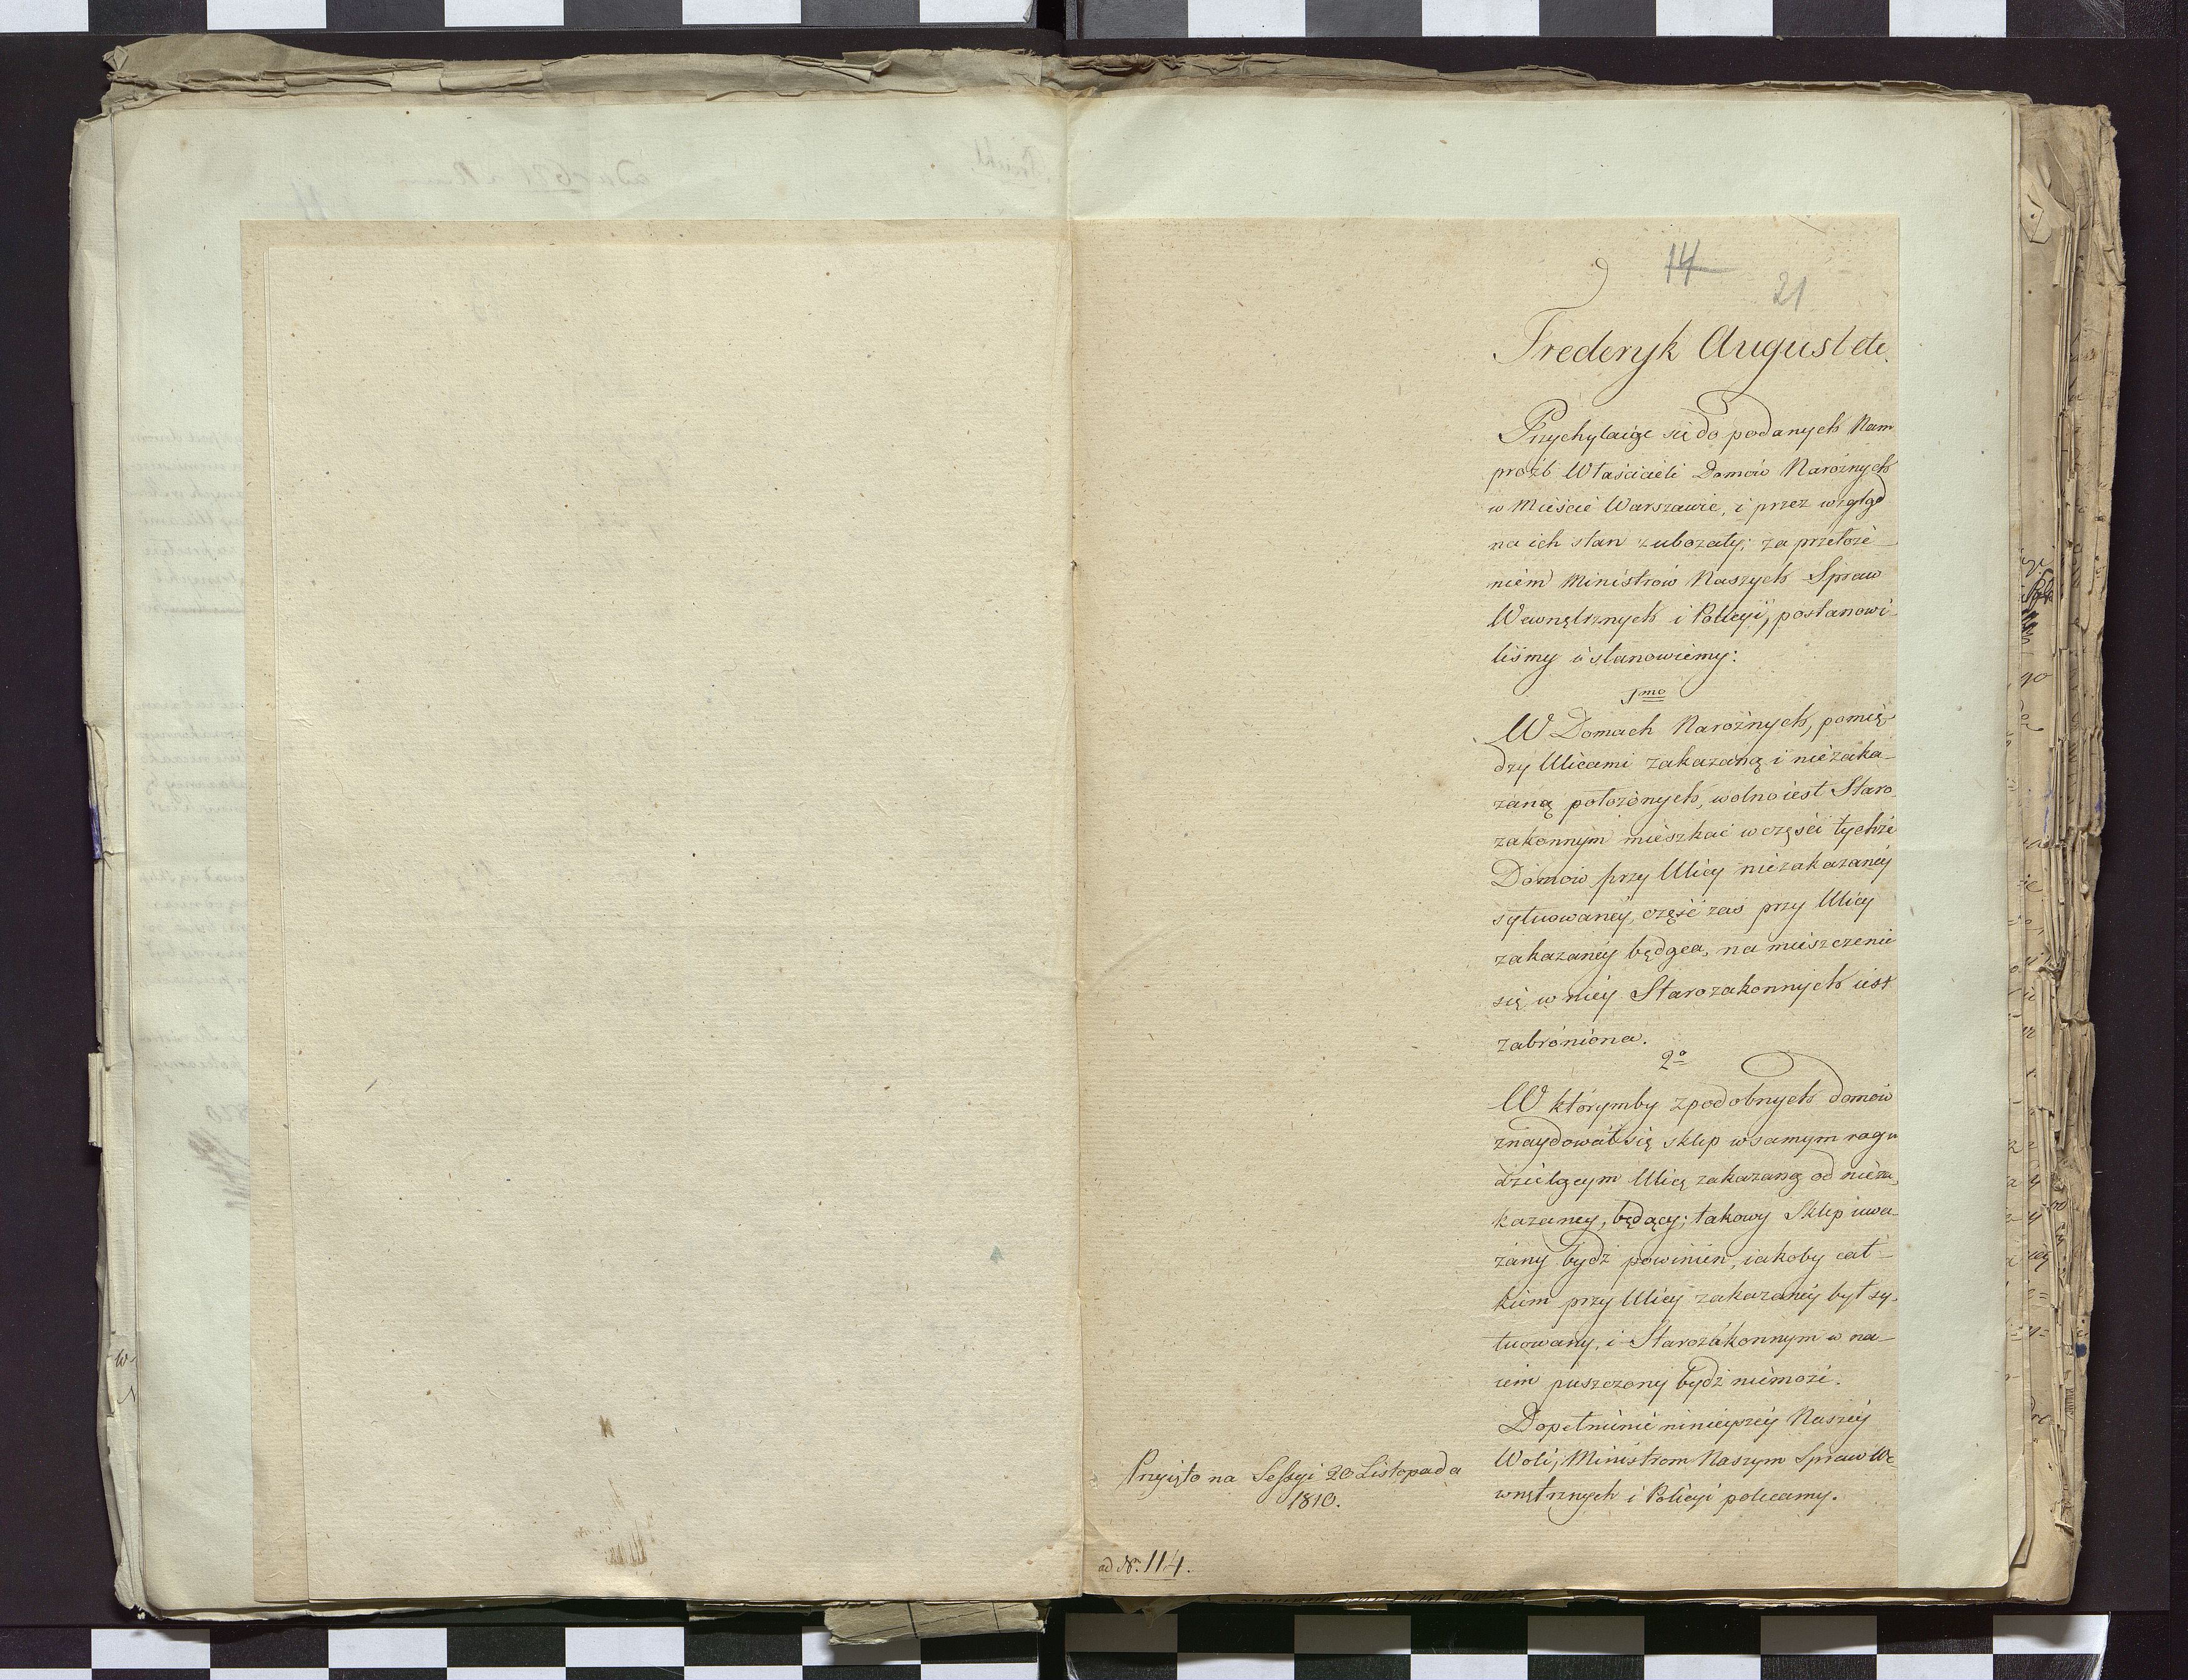 14
21
Frederyk August etc.
Przychylaiąc się do podanych Nam
proźb Właścicieli Domów Narożnych
w Mieście Warszawie, i przez wzgląd
na ich stan zubożały; za przełoże-
niem Ministrów Naszych Spraw
Wewnętrznych i Policyi, postanowi-
liśmy i stanowiemy:
1mo
W Domach Narożnych, pomię-
dzy Ulicami zakazaną i niezaka-
zaną położonych, wolno iest Staro-
zakonnym mieszkać w części tychże
Domów przy Ulicy niezakazanéy
sytuowanéy, część zaś przy Ulicy
zakazanéy będąca, na mieszczenie
się w niéy Starozakonnych iest
zabroniona.
2o
W którymby z podobnych domów
znaydował się sklep w samym rogu
dzielącym Ulicę zakazaną od nieza-
kazaney, będący; takowy Sklep uwa-
żany bydź powinien, iakoby cał-
kiem przy Ulicy zakazanéy był sy-
tuowany, i Starozakonnym w na-
iem puszczony bydź niemoże.
Dopełnienie ninieyszéy Naszéy
Woli, Ministrom Naszym Spraw We-
wnętrznych i Policyi polecamy.
Przyięto na Sessyi 20 Listopada
1810.
ad Nr. 114.